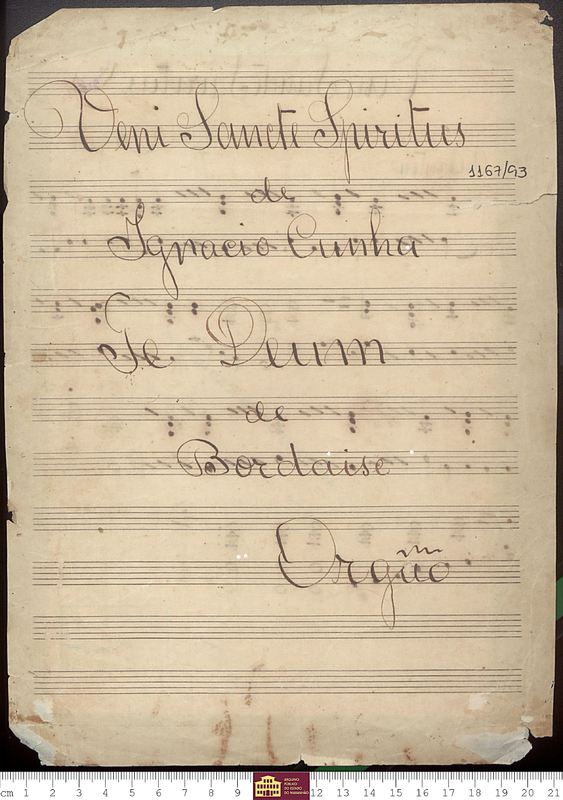 Veni Sancte Spiritus
1167/93
de
Ignacio Cunha
Te Deum
de
Bordaise
Orgão
cm 1 2 3 4 5 6 7 8 9 12 13 14 15 16 17 18 19 20 21
ARQUIVO
PÚBLICO
DO ESTADO
DO MARANHÃO